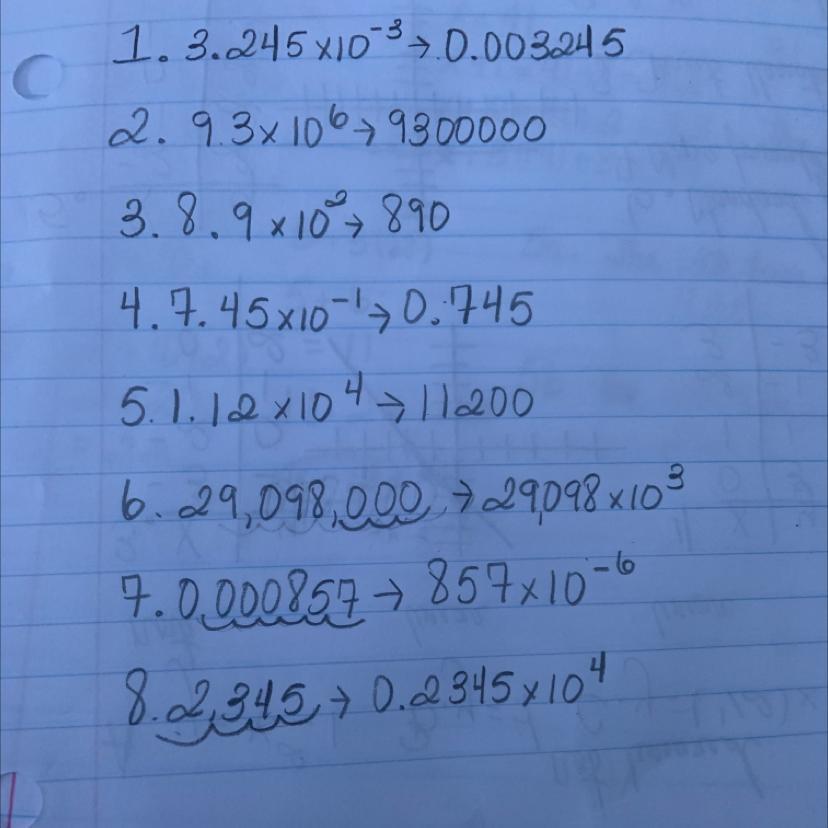 1. 3.245 x10⁻³ → 0.003245
2. 9.3 x 10⁶ → 9300000
3. 8.9 x10² → 890
4. 7.45 x10⁻¹ → 0.745
5. 1.12 x10⁴ → 11200
6. 29,098,000 → 29,098 x 10³
7. 0.000857 → 857 x 10⁻⁶
8. 2,345 → 0.2345 x 10⁴